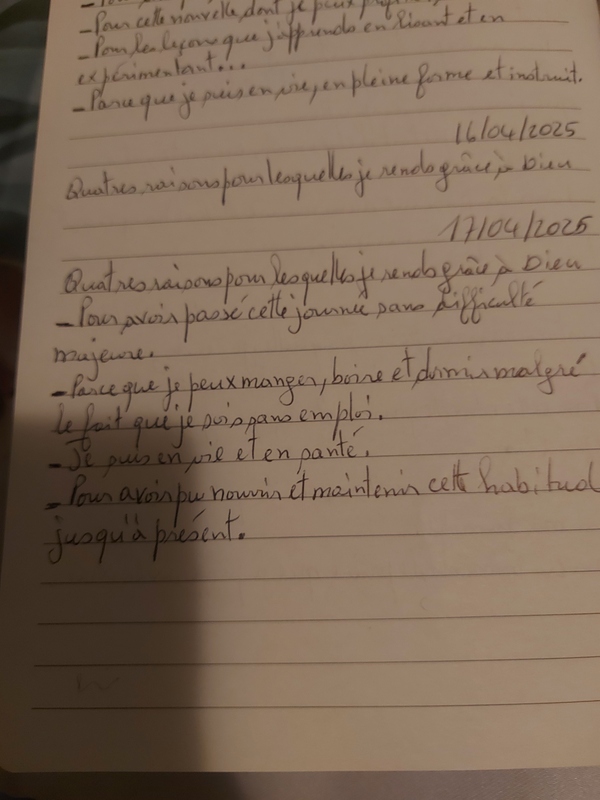 - Pour cette nouvelle dont je peux
- Pour les leçons que j'apprends en lisant et en
expérimentant...
- Parce que je suis en vie, en pleine forme et instruit.
16/04/2025
Quatres raisons pour lesquelles je rends grâce à Dieu
17/04/2025
Quatres raisons pour lesquelles je rends grâce à Dieu
- Pour avoir passé cette journée sans difficulté
majeure.
- Parce que je peux manger, boire et dormir malgré
le fait que je sois sans emploi.
- Je suis en vie et en santé.
- Pour avoir pu nourrir et maintenir cette habitud
jusqu'à présent.